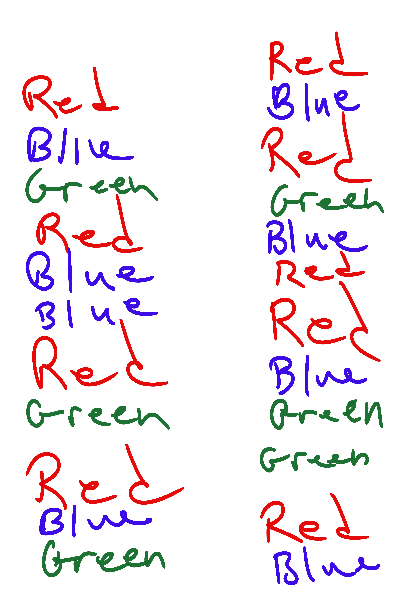 Red
Blue
Green
Red
Blue
Blue
Red
Green
Red
Blue
Green
Red
Blue
Red
Green
Blue
Red
Red
Blue
Green
Green
Red
Blue